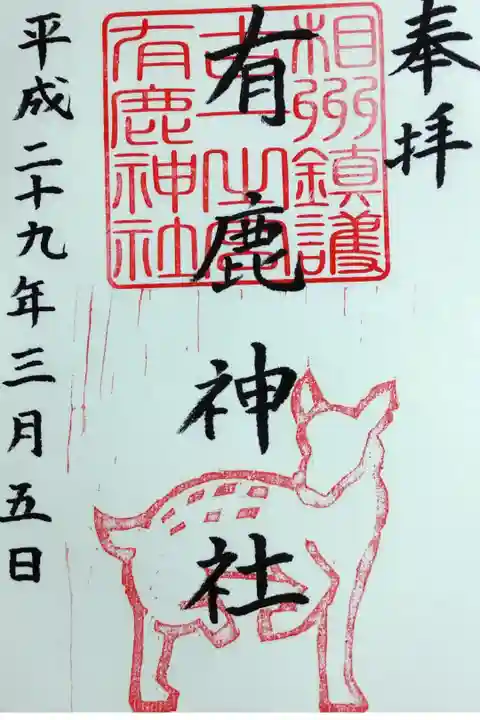 奉拝
相州鎮護
有鹿神社
有鹿神社
平成二十九年三月五日